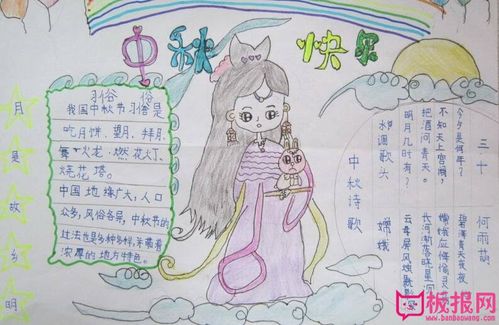 中秋快乐
月是故乡明
习俗
我国中秋节习俗是
吃月饼、望月、拜月、
舞火龙、燃花灯、
烧花塔。
中国地缘广大,人口
众多,风俗各异,中秋节的
过法也是多种多样,并带有
浓厚的地方特色。
中秋诗歌
水调歌头
明月几时有?
把酒问青天。
不知天上宫阙,
今夕是何年?
嫦娥
云母屏风烛影
长河渐落晓星
嫦娥应悔偷灵
碧海青天夜夜
三十
何雨萌
板报网
www.banbaowang.com